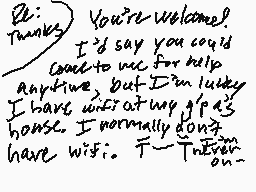 Re: Thanks
You're welcome!
I'd say you could
come to me for help
anytime, but I'm lucky
I have wifi at my g'pa's
house. I normally don't
have wifi. T~T I'm
on~